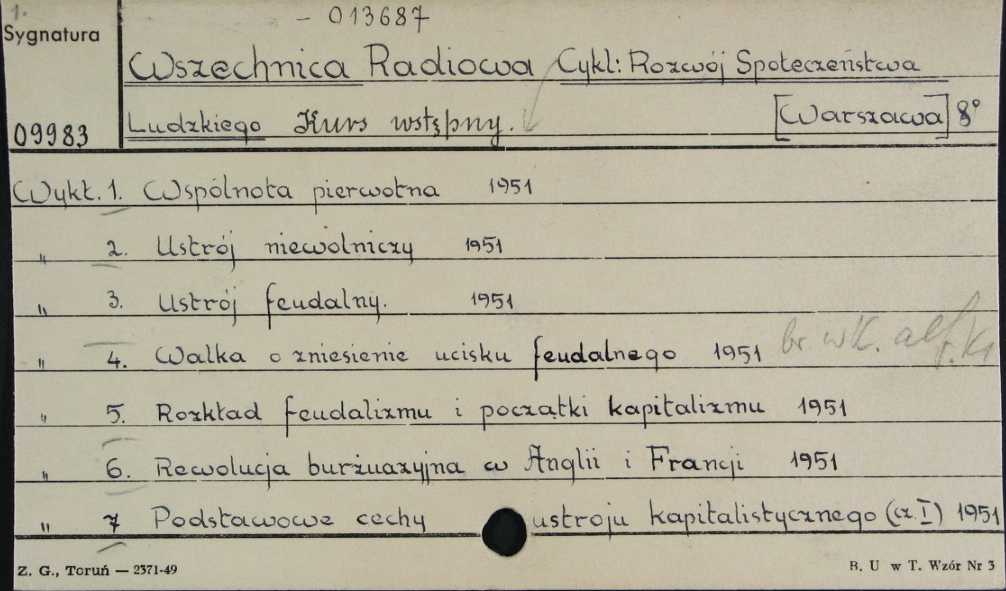 1.
- 013687
Sygnatura
Wszechnica Radiowa Cykl: Rozwój Społeczeństwa
09983
Ludzkiego Kurs wstępny. [Warszawa] 8°
Wykł. 1. Wspólnota pierwotna 1951
" 2. Ustrój niewolniczy 1951
" 3. Ustrój feudalny. 1951
" 4. Walka o zniesienie ucisku feudalnego 1951 br. w K. alf.
" 5. Rozkład feudalizmu i początki kapitalizmu 1951
" 6. Rewolucja burżuazyjna w Anglii i Francji 1951
" 7 Podstawowe cechy ustroju kapitalistycznego (cz. I) 1951
Z. G., Toruń — 2371-49 B. U w T. Wzór Nr 3